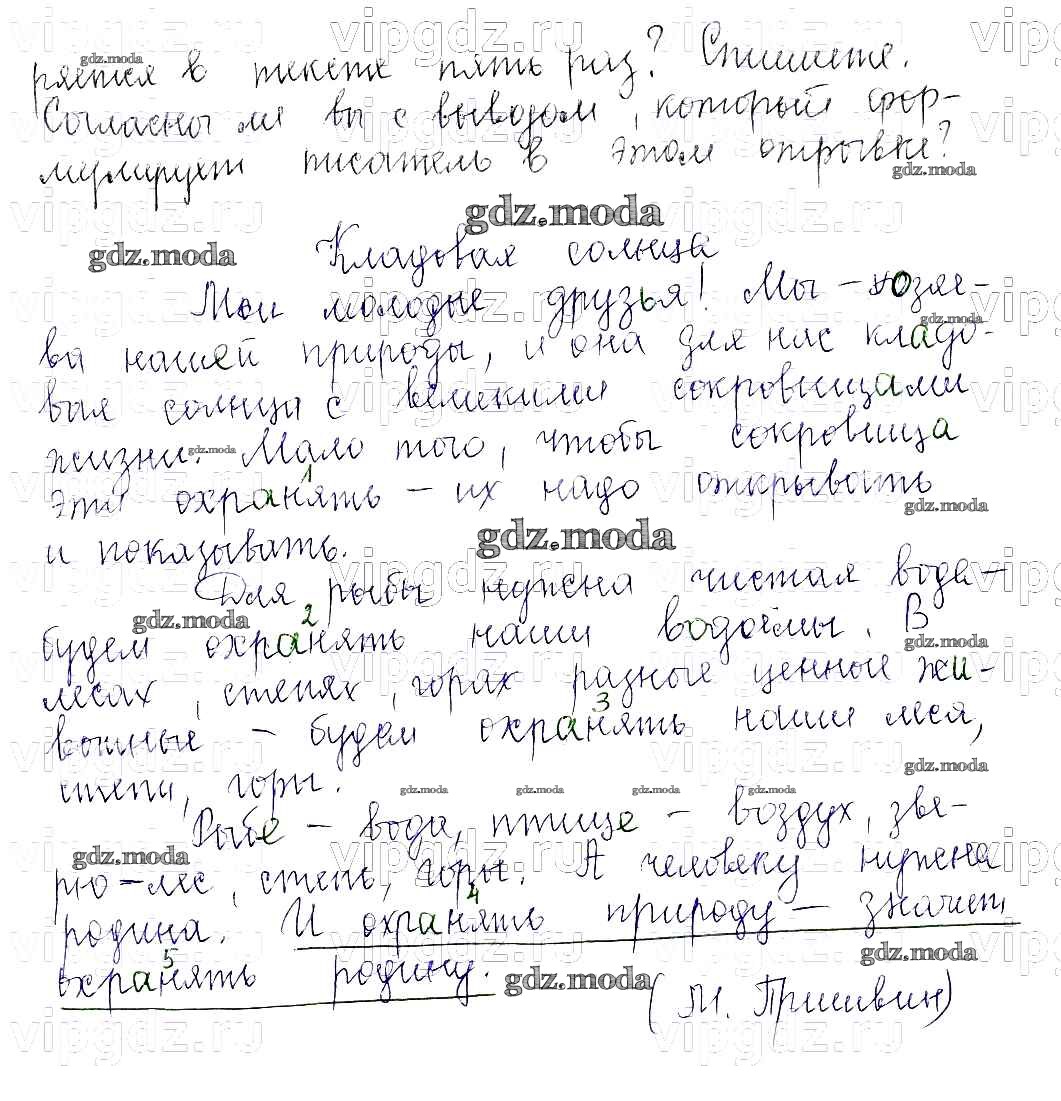 ряется в тексте пять раз? Спишите.
Согласно ли вы с выводом, который фор-
мулирует писатель в этом отрывке?
Кладовая солнца
Мои молодые друзья! Мы – хозяе-
ва нашей природы, и она для нас кладо-
вая солнца с великими сокровищами
жизни. Мало того, чтобы сокровища
эти охранять – их надо открывать
и показывать.
Для рыбы нужна чистая вода –
будем охранять наши водоёмы. В
лесах, степях, горах разные ценные жи-
вотные – будем охранять наши леса,
степи, горы.
Рыбе – вода, птице – воздух, зве-
рю – лес, степь, горы. А человеку нужна
родина. И охранять природу – значит,
охранять родину.
(М. Пришвин)